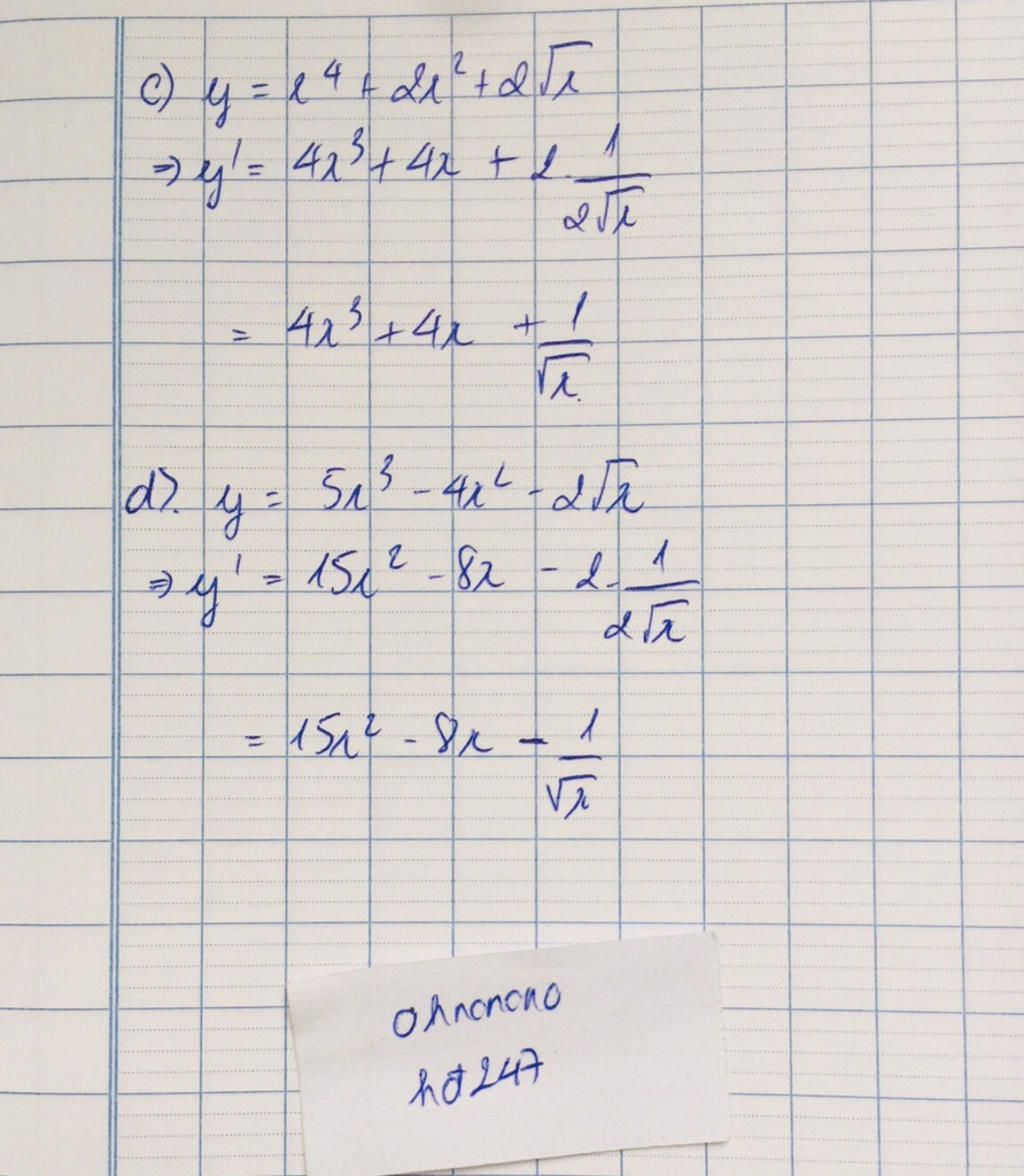 c) y = x⁴ + 2x² + 2√x
⇒ y' = 4x³ + 4x + 2.1/(2√x)
= 4x³ + 4x + 1/√x
d). y = 5x³ - 4x² - 2√x
⇒ y' = 15x² - 8x - 2.1/(2√x)
= 15x² - 8x - 1/√x
ohnonono
hđ247